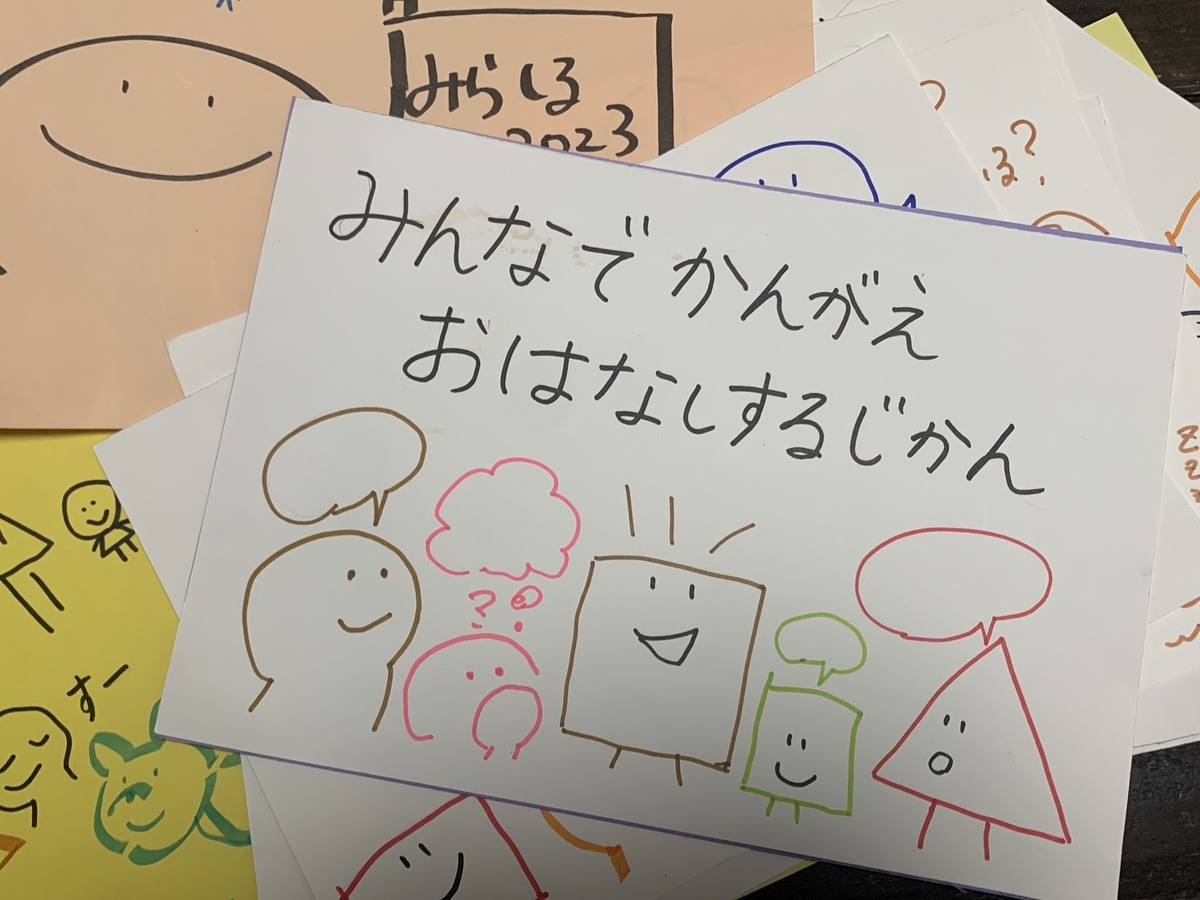 みらしる
2023
みんなで かんがえ
おはなしするじかん
?
?
る?
すー
z
z
z